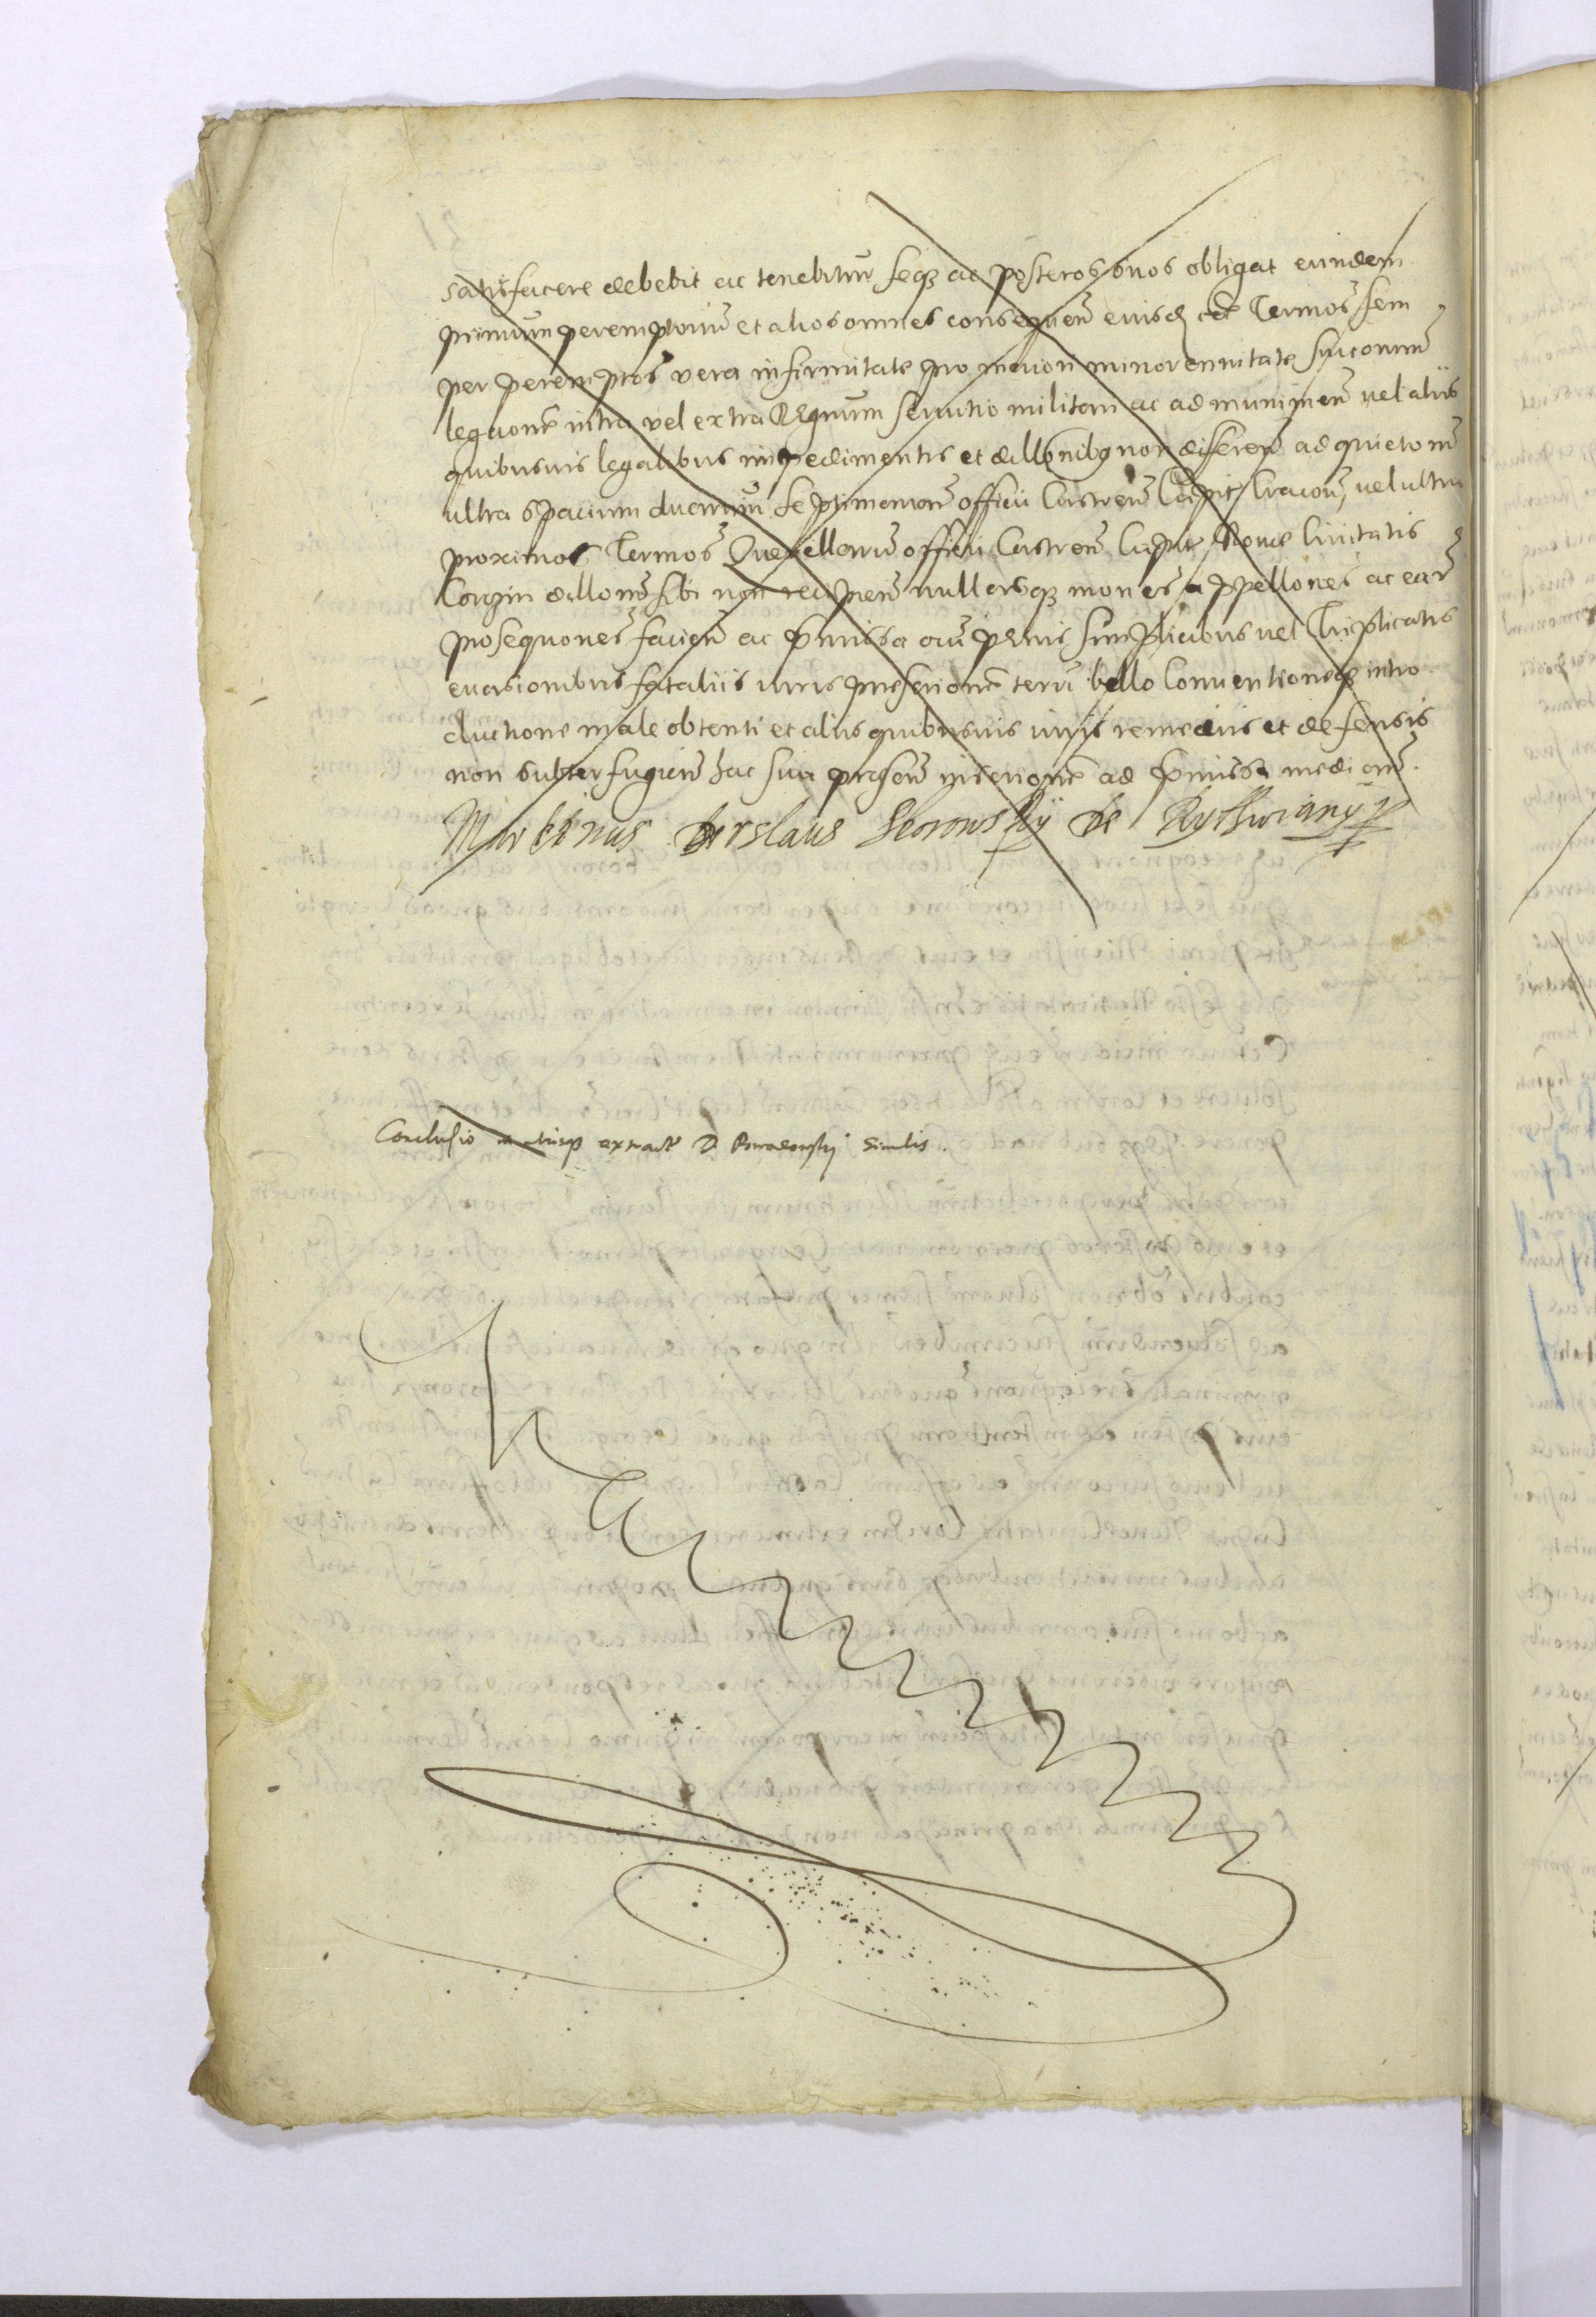 satisfacere debebit ac tenebitur seq3 ac posteros suos obligat eundem
primum peremptorium et alios omnes consequen̄ eiusd ce Termos sem
per peremptos vera infirmitate pro maiori minorennitate succorum
legaone intra vel extra Regnum seruitio militari ac ad munimen vel aliis
quibusuis legalibus impedimentis et dillonibq non differen ad quietonem
ultra spacium duarum septimanarum officii Castren Capit Cracouien vel ultra
proximos Termos Querellarum officii Castren Capit Noue Ciuitatis
Corczin dillonem sibi non recipien nullasq3 mones appellones ac earum
prosequones facien ac pmissa cum penis simplicibus vel Triplicatis
euasionibus fataliis iuris prescrione terre bello Conuentionisq3 intro
ductione male obtenti et aliis quibusuis iuris remediis et defensis
non subterfugien hac sua presen inscrione ad pmissa median.
Martinus Derslaus Sborowskÿ de Rythwianÿ
Conclusio extract D. similis.